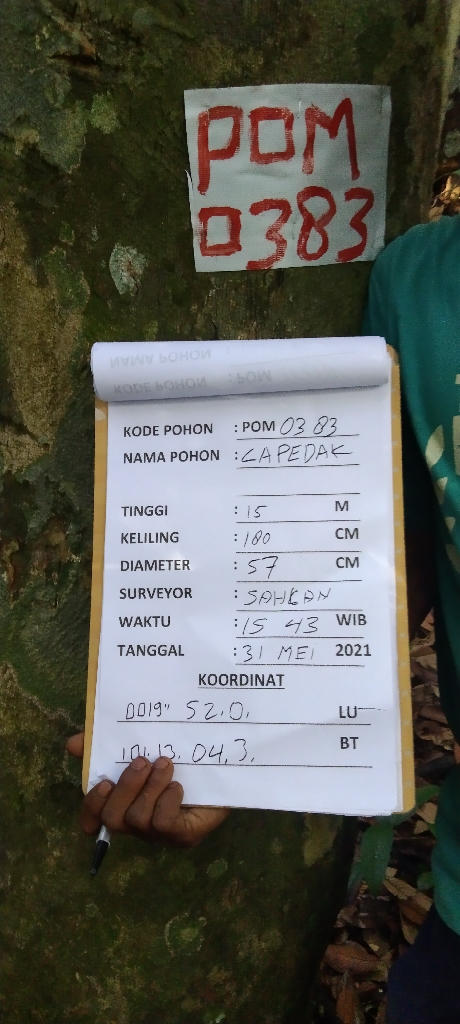 POM
0383
NAMA POHON :
KODE POHON : POM
KODE POHON : POM 0383
NAMA POHON : CAPEDAK
TINGGI : 15 M
KELILING : 180 CM
DIAMETER : 57 CM
SURVEYOR : SAHKAN
WAKTU : 15 43 WIB
TANGGAL : 31 MEI 2021
KOORDINAT
0019" 52.0. LU
101.13.04.3. BT